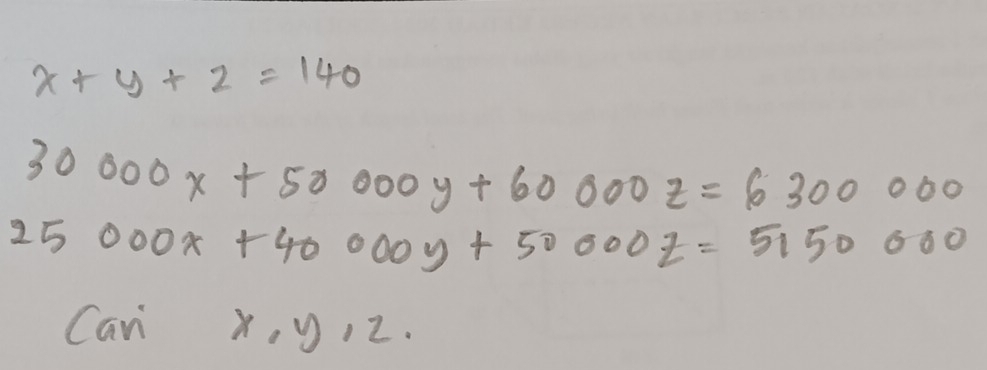 x + y + z = 140
30 000x + 50 000y + 60 000z = 6 300 000
25 000x + 40 000y + 50 000z = 5150 000
Cari x, y, z.